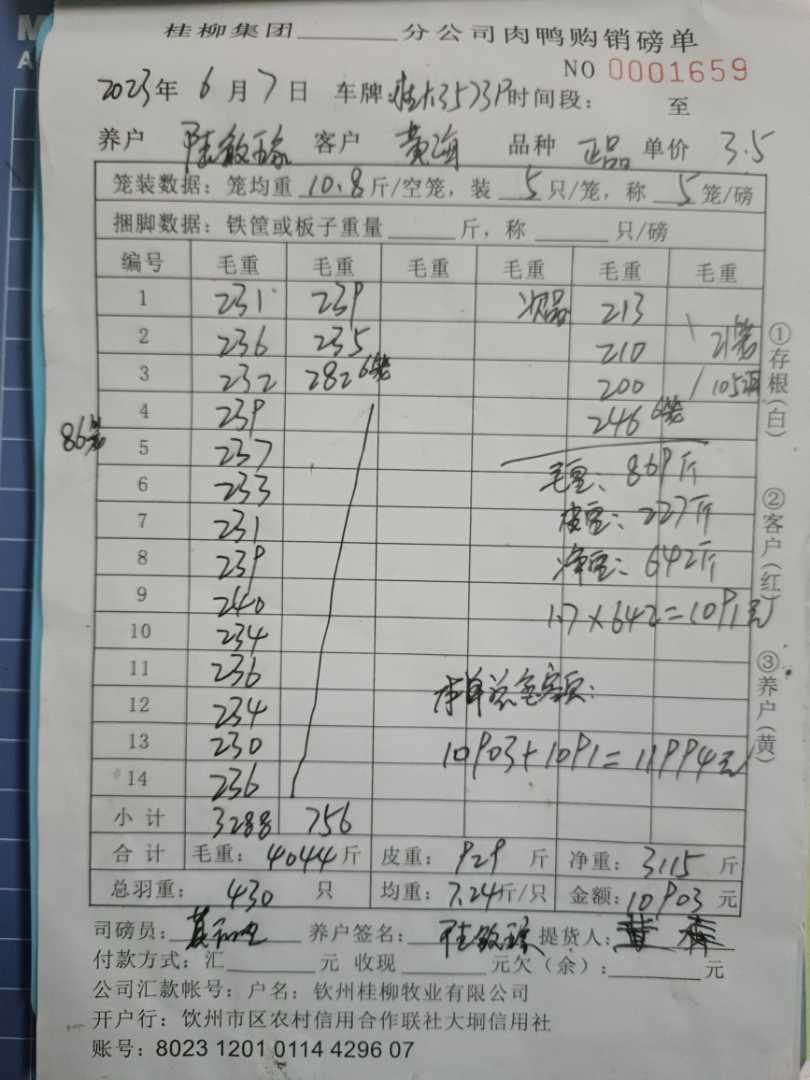 桂柳集团______分公司肉鸭购销磅单
NO 0001659
2023年 6月7日 车牌: 桂A3573P 时间段: 至
养户 陆敏 客户 黄海 品种 正品 单价 3.5
笼装数据: 笼均重 10.8 斤/空笼, 装 5 只/笼, 称 5 笼/磅
捆脚数据: 铁筐或板子重量______斤, 称______只/磅
编号 毛重 毛重 毛重 毛重 毛重 毛重
1 231 239 次品 213
2 236 235 210 21笼
3 232 282 6笼 200 105
4 239 246 6笼
86笼
5 237 毛重: 869斤
6 233 皮重: 227斤
7 231 净重: 642斤
8 239
9 240 1.7×642=1091元
10 234
11 236 本单总金额:
12 234
13 230 10903+1091=11994元
14 236
小计 3288 756
合计 毛重: 4044斤 皮重: 929斤 净重: 3115斤
总羽重: 430只 均重: 7.24斤/只 金额: 10903元
①存根(白)
②客户(红)
③养户(黄)
司磅员: 养户签名: 陆敏 提货人:
付款方式: 汇______元 收现______元欠(余):______元
公司汇款帐号: 户名: 钦州桂柳牧业有限公司
开户行: 钦州市区农村信用合作联社大垌信用社
账号: 8023 1201 0114 4296 07